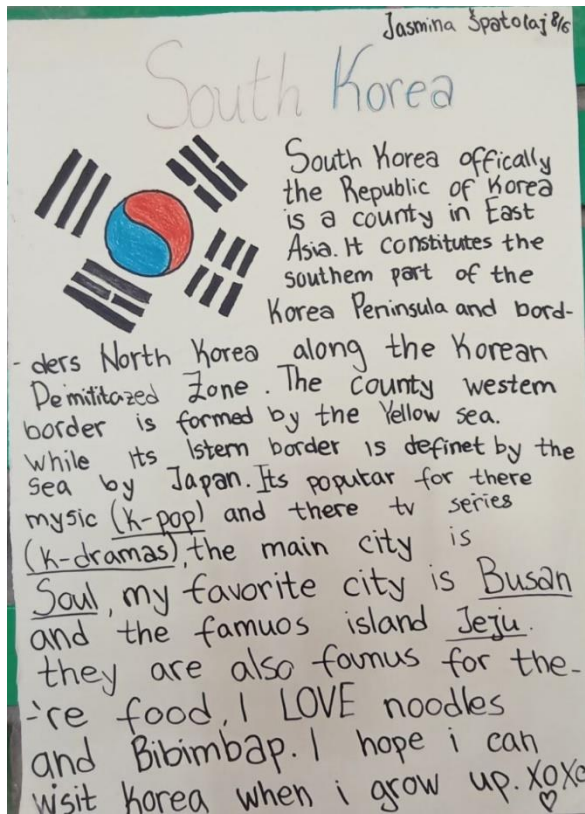 Jasmina Špatolaj 8/6
South Korea
South Korea offically
the Republic of Korea
is a county in East
Asia. It constitutes the
southem part of the
Korea Peninsula and bord-
- ders North Korea along the Korean
Demititazed Zone. The county westem
border is formed by the Yellow sea.
while its Istern border is definet by the
sea by Japan. Its poputar for there
mysic (k-pop) and there tv series
(k-dramas), the main city is
Soul, my favorite city is Busan
and the famuos island Jeju.
they are also founus for the-
-'re food, I LOVE noodles
and Bibimbap. I hope i can
visit Korea when i grow up. XOXO